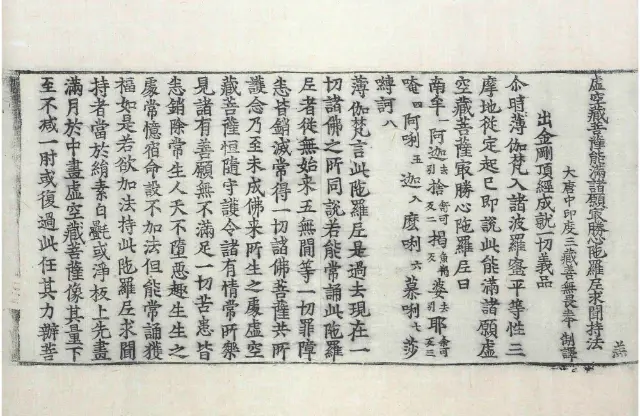 虛空藏菩薩能滿諸願冣勝心陀羅尼求聞持法 燕
大唐中印度三藏善無畏奉 制譯
出金剛頂經成就一切義品
尒時薄伽梵入諸波羅蜜平等性三
摩地從定起已即說此能滿諸願虛
空藏菩薩冣勝心陀羅尼曰
南牟一阿迦去引捨奢可反二揭魚羯反婆去引耶余可反引三
唵四阿唎五迦入麼唎六慕唎七莎
嚩訶八
薄伽梵言此陀羅尼是過去現在一
切諸佛之所同說若能常誦此陀羅
尼者從無始來五無間等一切罪障
悉皆銷滅常得一切諸佛菩薩共所
護念乃至未成佛來所生之處虛空
藏菩薩恒隨守護令諸有情常所樂
見諸有善願無不滿足一切苦患皆
悉銷除常生人天不墮惡趣生生之
處常憶宿命設不加法但能常誦獲
福如是若欲加法持此陀羅尼求聞
持者當於絹素白㲲或淨板上先畫
滿月於中畫虛空藏菩薩像其量下
至不減一肘或復過此任其力辦菩